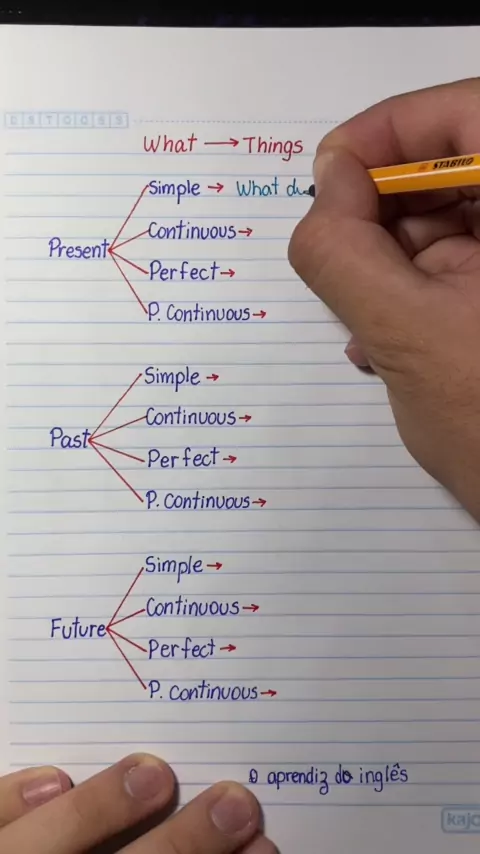 D S T Q Q S S
What → Things
STABILO
Simple → What
Continuous →
Present
Perfect →
P. Continuous →
Simple →
Continuous →
Past
Perfect →
P. Continuous →
Simple →
Continuous →
Future
Perfect →
P. Continuous →
O aprendiz do inglês